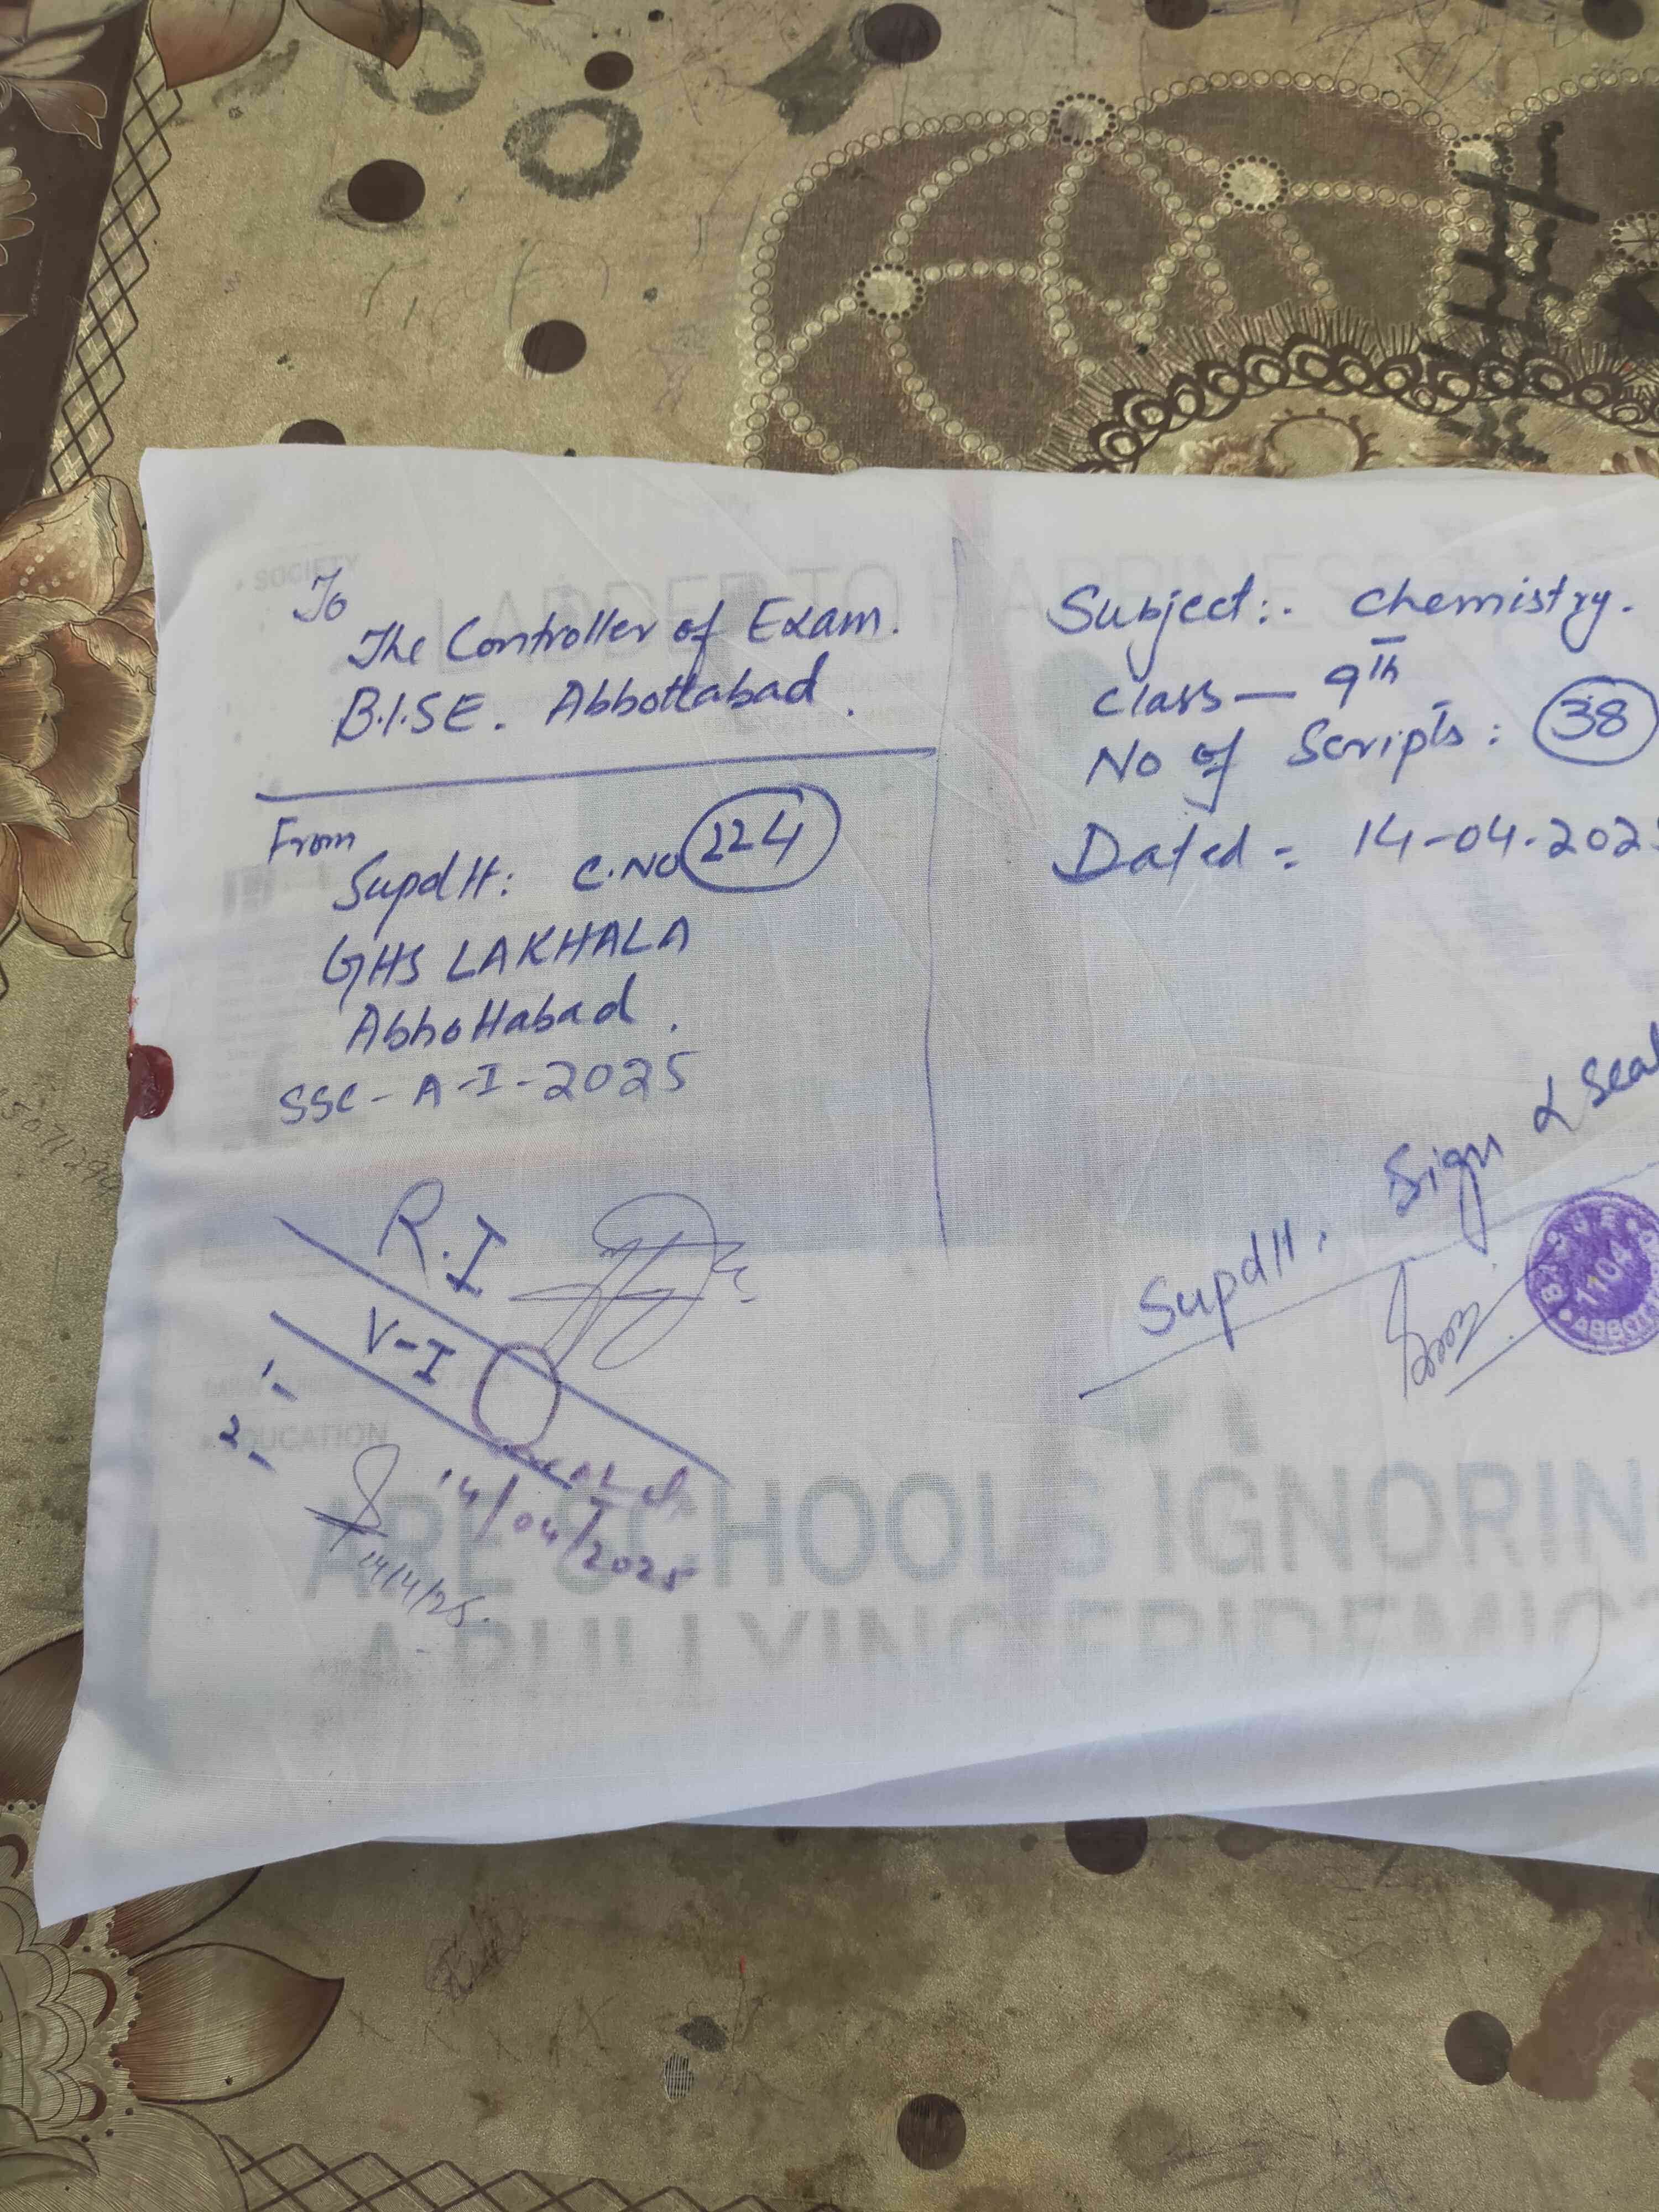 To
The Controller of Exam.
B.I.SE. Abbottabad.
From
Supdtt: C.NO 224
GHS LAKHALA
Abbottabad.
SSC-A-I-2025
Subject:. Chemistry.
Class — 9th
No of Scripts: 38
Dated = 14-04-202
Supdtt. Sign & Seal
R.I
V-I
1-
2-
14/04/2025
14/4/25.
• SOCIETY
LADDER TO HAPPINESS
EDUCATION
ARE SCHOOLS IGNORIN
A BULLYING EPIDEMIC?